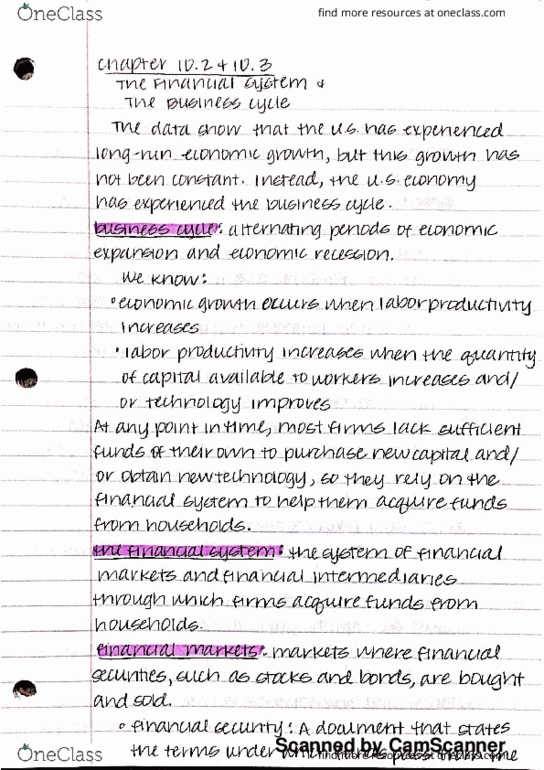 OneClass
find more resources at oneclass.com
Chapter 10.2 & 10.3
The Financial System &
The Business Cycle
The data show that the U.S. has experienced
long-run economic growth, but this growth has
not been constant. Instead, the U.S. economy
has experienced the business cycle.
business cycle: alternating periods of economic
expansion and economic recession.
We know:
• economic growth occurs when labor productivity
increases
• labor productivity increases when the quantity
of capital available to workers increases and/
or technology improves
At any point in time, most firms lack sufficient
funds of their own to purchase new capital and/
or obtain new technology, so they rely on the
financial system to help them acquire funds
from households.
the financial system: the system of financial
markets and financial intermediaries
through which firms acquire funds from
households.
financial markets: markets where financial
securities, such as stocks and bonds, are bought
and sold.
• financial security: A document that states
the terms under
Scanned by CamScanner
OneClass
find more resources at oneclass.com